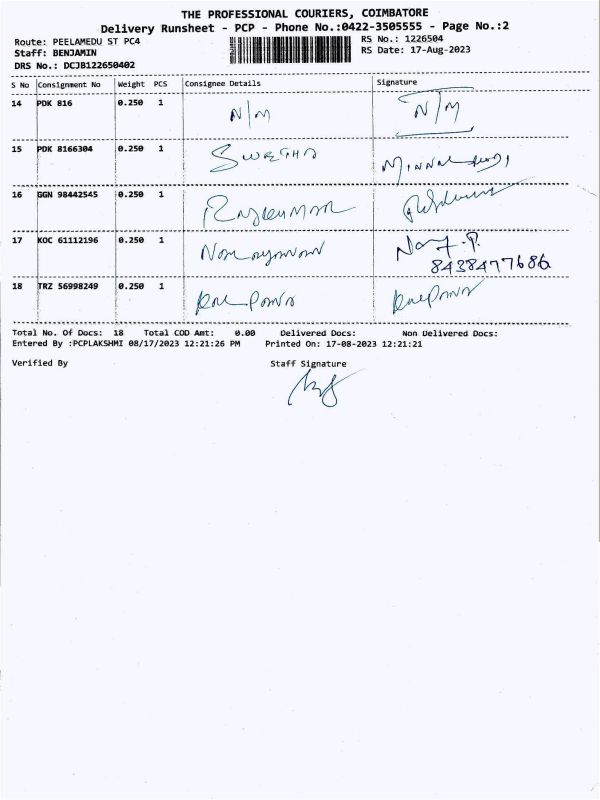 THE PROFESSIONAL COURIERS, COIMBATORE
Delivery Runsheet - PCP - Phone No.:0422-3505555 - Page No.:2
Route: PEELAMEDU ST PC4 RS No.: 1226504
Staff: BENJAMIN RS Date: 17-Aug-2023
DRS No.: DCJB122650402
S No Consignment No Weight PCS Consignee Details Signature
14 PDK 816 0.250 1 N/M N/M
15 PDK 8166304 0.250 1 SWETHA
16 GGN 98442545 0.250 1 RAJKUMAR
17 KOC 61112196 0.250 1
8438477686
18 TRZ 56998249 0.250 1
Total No. Of Docs: 18 Total COD Amt: 0.00 Delivered Docs: Non Delivered Docs:
Entered By :PCPLAKSHMI 08/17/2023 12:21:26 PM Printed On: 17-08-2023 12:21:21
Verified By Staff Signature